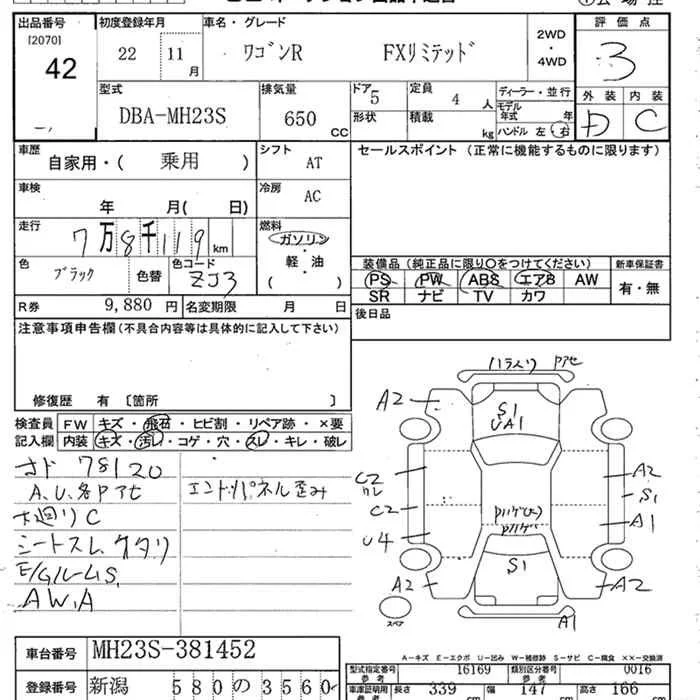 出品番号 初度登録年月 車名・グレード 評価点
[2070]
42
22 11月 ワゴンR FXリミテッド 2WD・4WD 3
型式 排気量 ドア 定員 ディーラー・並行 外装 内装
DBA-MH23S 650CC 5 4人 モデル年式 年 D C
形状 積載 kg ハンドル 左・右
車歴 自家用・( 乗用 ) シフト AT セールスポイント (正常に機能するものに限ります)
車検 年 月( 日) 冷房 AC
走行 7万8千119km 燃料 ガソリン・軽・油 ( )
色 ブラック 色替 色コード ZJ3
装備品 (純正品に限り○をつけてください) 新車保証書
PS PW ABS エアB AW 有・無
SR ナビ TV カワ
R券 9,880円 名変期限 月 日 後日品
注意事項申告欄(不具合内容等は具体的に記入して下さい)
修復歴 有 〔箇所 〕
検査員記入欄 FW キズ・飛石・ヒビ割・リペア跡・×要
内装 キズ・汚レ・コゲ・穴・スレ・キレ・破レ
78120
A、U、各Pアセ エンドパネル歪み
C
シートスレ、ケタリ
E/GルームS、
A W、A
A2
S1
UA1
C2
C2
U4
A2
S1
A1
S1
A2
A2
A1
スペア
A-キズ E-エクボ U-凹み W-補修跡 S-サビ C-腐食 ××-交換済
車台番号 MH23S-381452
登録番号 新潟 580の3560
型式指定番号 参考 16169 類別区分番号 参考 0016
車庫証明用 参考 長さ 339 幅 147 高さ 166